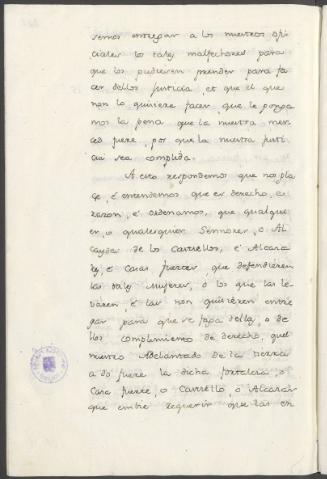 semos entregar a los nuestros ofi
ciales los tales malfechores para
que los pudiesen prender para fa
cer dellos justicia, et que el que
non lo quisiere facer, que le ponga
mos la pena que la nuestra mer
ced fuere, por que la nuestra justi
cia sea complida.
A esto respondemos que nos pla
ce, é entendemos que es derecho, e
razon, é ordenamos, que qualque
er, o qualesquier Sennores, o Al
caydes de los Castellos, é Alcaza
res, é Casas fuertes, que defendieren
las tales Mujeres, o los que las le
váren, é las non quisiéren entre
gar para que se faga della, o de
llos complimiento de derecho, quel
nuestro Adelantado de la tierra
a do fuere la dicha fortaleza, o
Casa fuerte, o Castello, o Alcazar
que embie requerir que las en